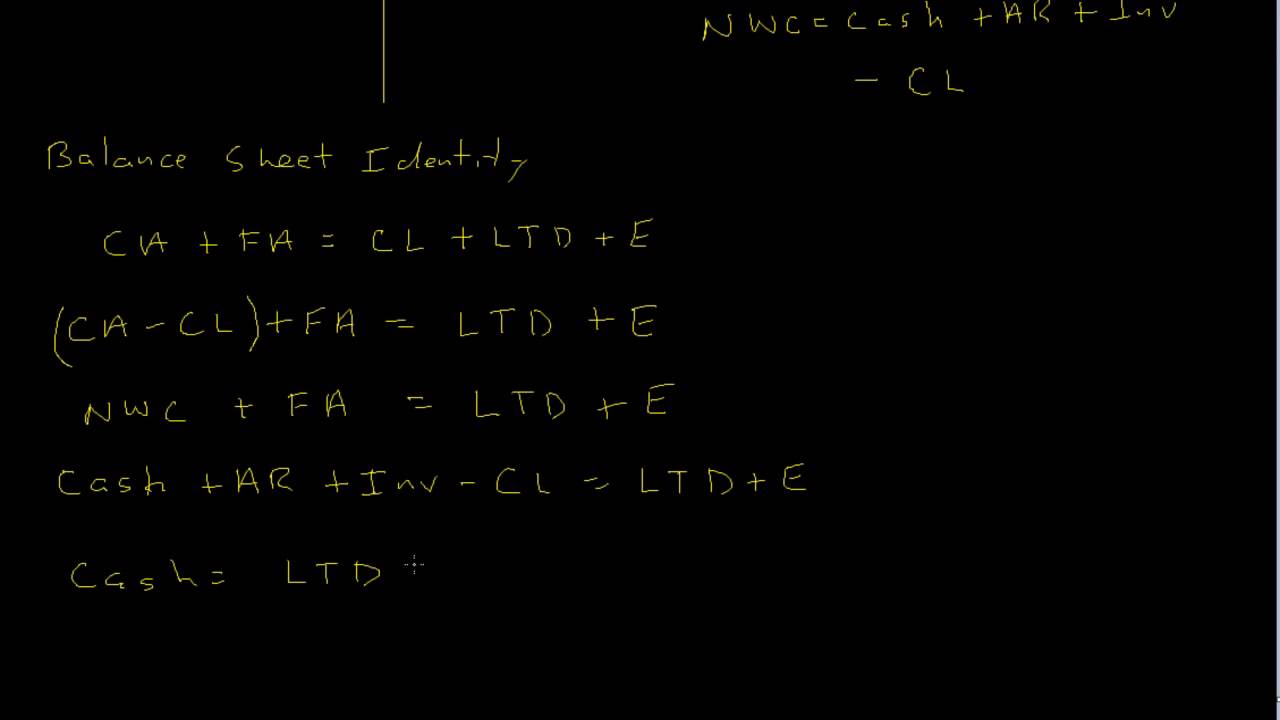 NWC = Cash + AR + Inv
- CL
Balance Sheet Identity
CA + FA = CL + LTD + E
(CA - CL) + FA = LTD + E
NWC + FA = LTD + E
Cash + AR + Inv - CL = LTD + E
Cash = LTD